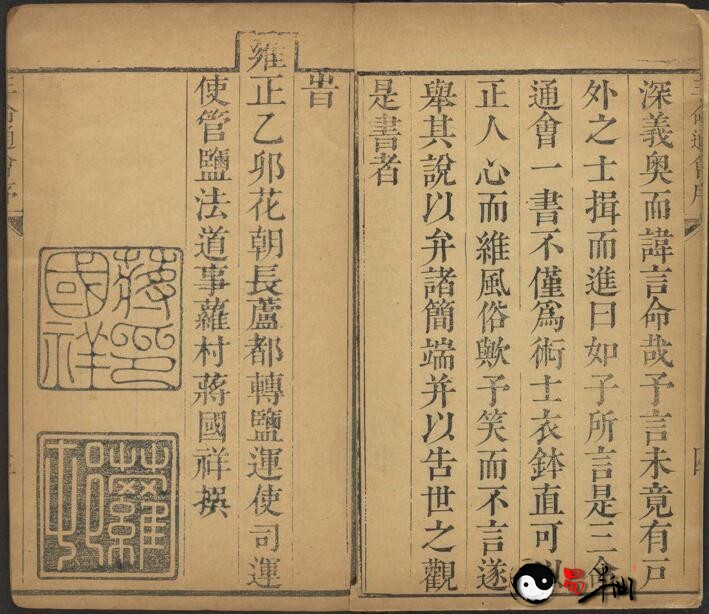 三命通會序
深義奧而諱言命哉予言未竟有戸
外之士揖而進曰如子所言是三命
通會一書不僅爲術士衣鉢直可以
正人心而維風俗歟予笑而不言遂
舉其說以弁諸簡端并以告世之觀
是書者
旹
雍正乙卯花朝長蘆都轉鹽運使司運
使管鹽法道事蘿村蔣國祥撰
蔣國祥印
三命通會序